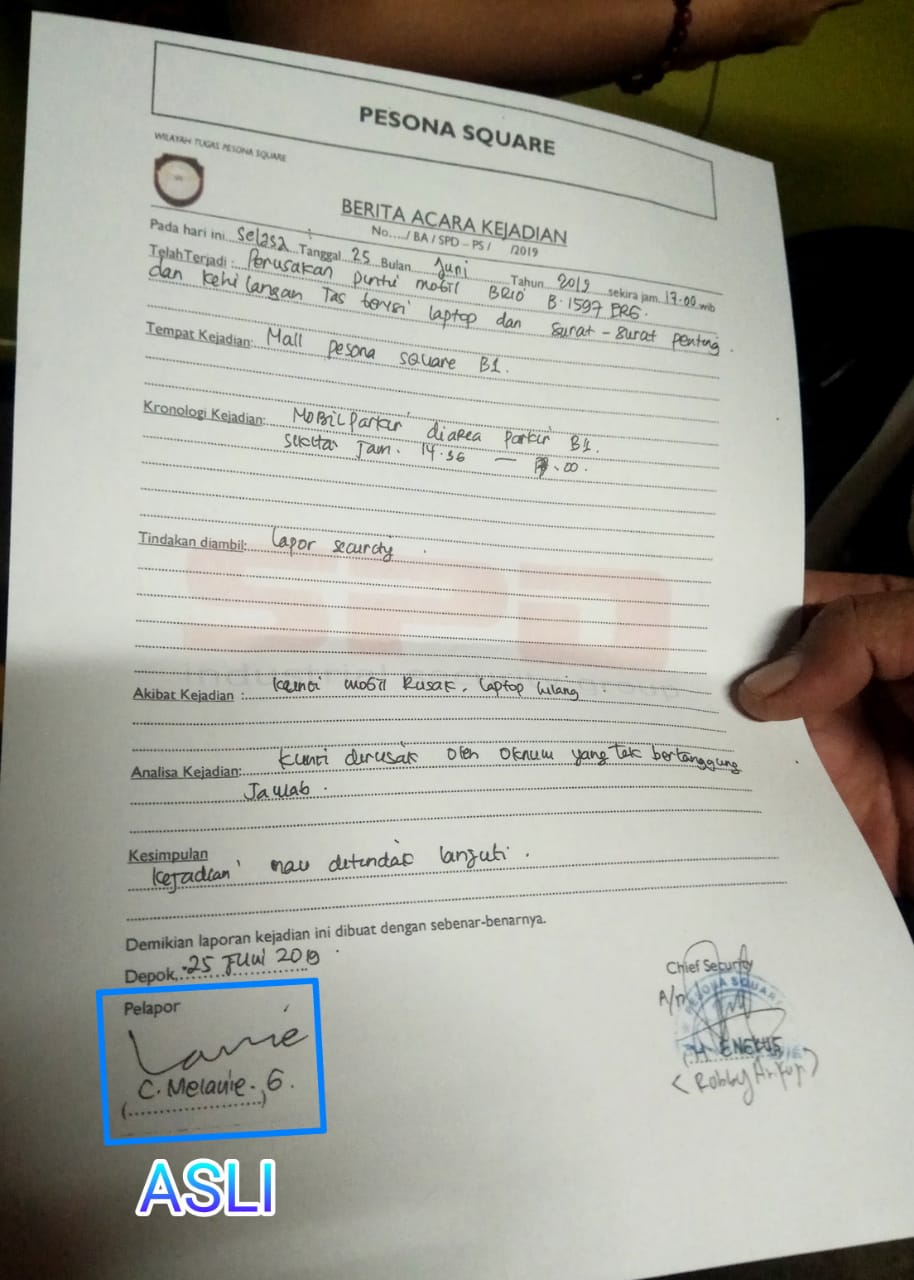 PESONA SQUARE
WILAYAH TUGAS PESONA SQUARE
BERITA ACARA KEJADIAN
No..../ BA / SPD – PS / /2019
Pada hari ini Selasa Tanggal 25 Bulan Juni Tahun 2019 sekira jam 17.00 wib
Telah Terjadi : Perusakan pintu mobil BRIO B.1597 ERG.
dan kehilangan Tas berisi laptop dan surat-surat penting.
Tempat Kejadian: Mall pesona square B1.
Kronologi Kejadian: Mobil parkir diarea parkir B1.
sekitar Jam. 14.36 — .00.
Tindakan diambil: lapor security.
SPD
Akibat Kejadian : kunci mobil Rusak, laptop hilang
Analisa Kejadian: kunci dirusak oleh oknum yang tak bertanggung
Jawab.
Kesimpulan
kejadian mau ditindak lanjuti.
Demikian laporan kejadian ini dibuat dengan sebenar-benarnya.
Depok, 25 Juni 2019
Pelapor
C. Melanie. G.
Chief Security
A/n
PESONA SQUARE
ASLI